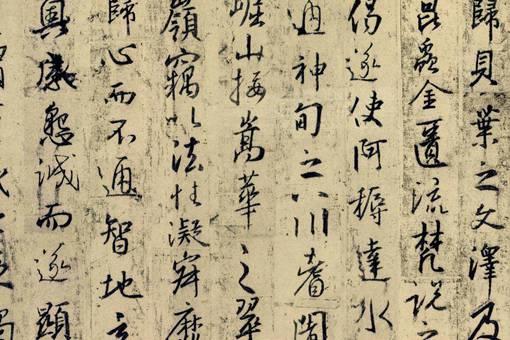 歸貝葉之文澤及
昆蟲金匱流梵說之
偈遂使阿耨達水
通神甸之八川耆闍
崛山接嵩華之翠
嶺竊以法性凝寂靡
歸心而不通智地玄
奧感懇誠而遂顯